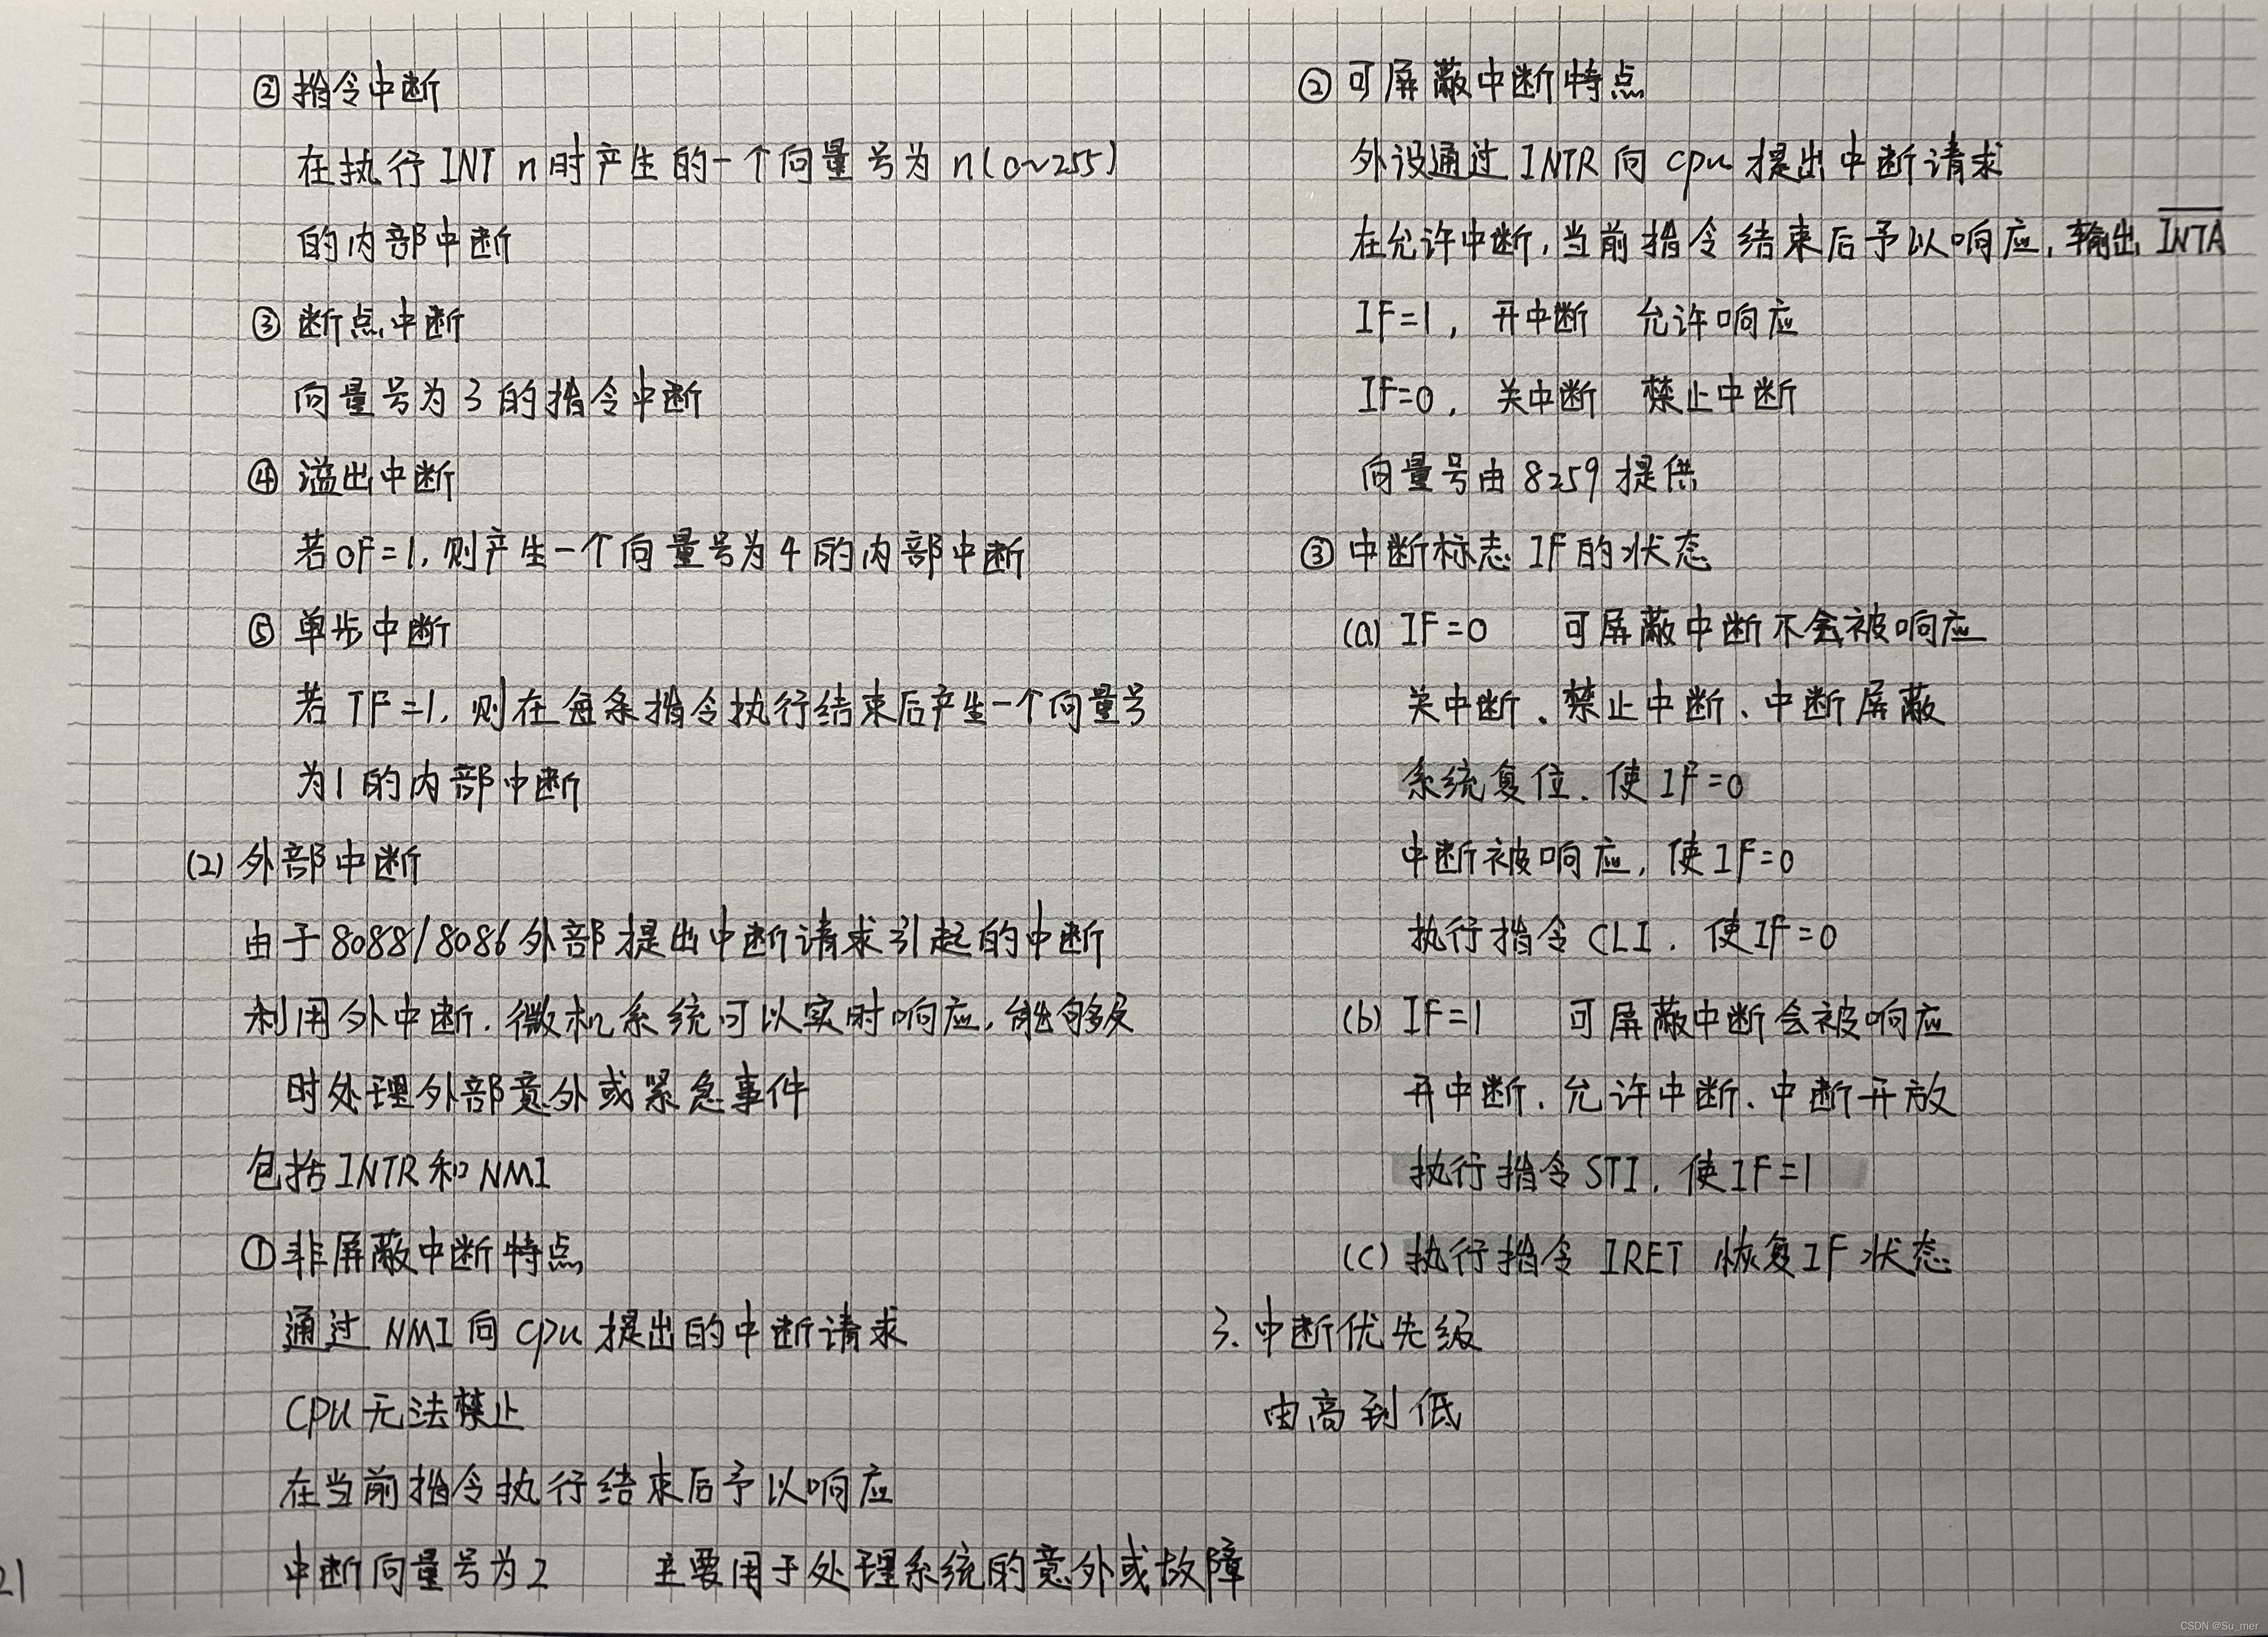 ② 指令中断
在执行 INT n 时产生的一个向量号为 n(0~255)
的内部中断
③ 断点中断
向量号为 3 的指令中断
④ 溢出中断
若 OF=1, 则产生一个向量号为 4 的内部中断
⑤ 单步中断
若 TF=1, 则在每条指令执行结束后产生一个向量号
为1的内部中断
(2) 外部中断
由于8088/8086外部提出中断请求引起的中断
利用外中断, 微机系统可以实时响应, 能够及
时处理外部意外或紧急事件
包括INTR和NMI
① 非屏蔽中断特点
通过 NMI 向 cpu 提出的中断请求
CPU 无法禁止
在当前指令执行结束后予以响应
中断向量号为2 主要用于处理系统的意外或故障
21
② 可屏蔽中断特点
外设通过 INTR 向 cpu 提出中断请求
在允许中断, 当前指令结束后予以响应, 输出 I̅N̅T̅A̅
IF=1, 开中断 允许响应
IF=0, 关中断 禁止中断
向量号由 8259 提供
③ 中断标志 IF 的状态
(a) IF=0 可屏蔽中断不会被响应
关中断、禁止中断、中断屏蔽
系统复位, 使 IF=0
中断被响应, 使 IF=0
执行指令 CLI, 使IF=0
(b) IF=1 可屏蔽中断会被响应
开中断、允许中断、中断开放
执行指令 STI, 使IF=1
(c) 执行指令 IRET 恢复IF 状态
3. 中断优先级
由高到低
CSDN @Su_mer